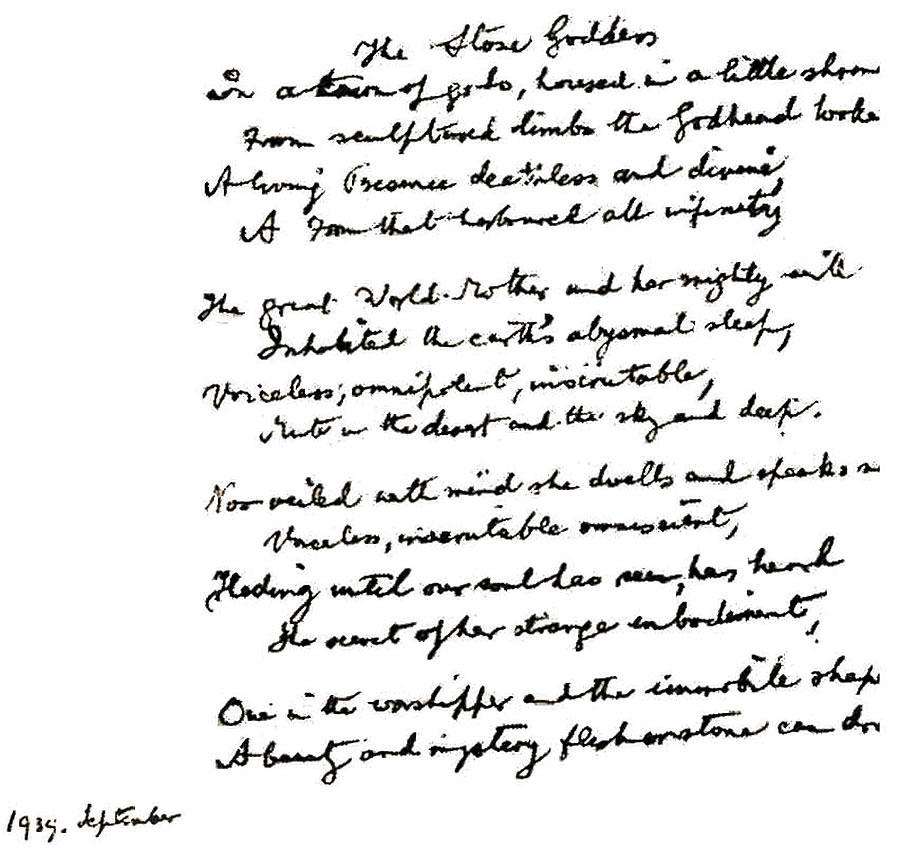 The Stone Goddess
In a town of gods, housed in a little shrine
From sculptured limbs the Godhead looked
A living Presence deathless and divine,
A Form that harboured all infinity
The great World-Mother and her mighty will
Inhabited the earth's abysmal sleep,
Voiceless, omnipotent, inscrutable,
Mute in the desert and the sky and deep.
Now veiled with mind she dwells and speaks
Voiceless, inscrutable omniscient,
Hiding until our soul has seen, has heard
The secret of her strange embodiment,
One in the worshipper and the immobile shape
A beauty and mystery flesh or stone can
1939. September